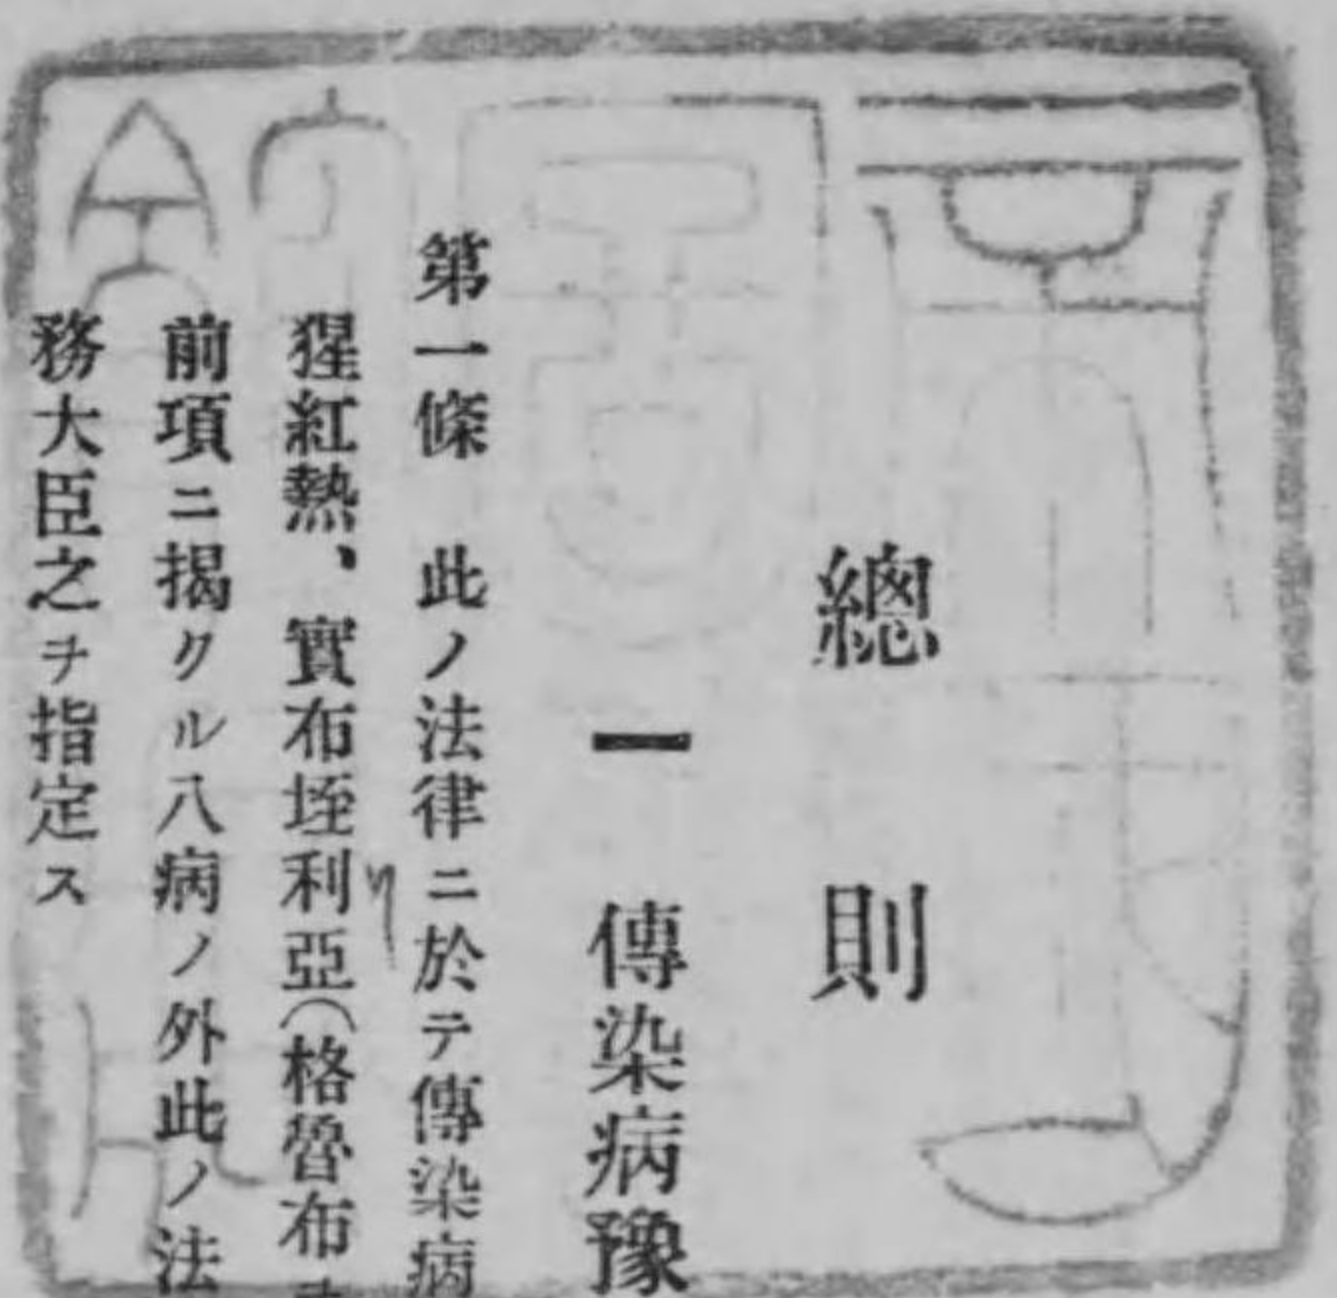 總則
一 傳染病豫
第一條 此ノ法律ニ於テ傳染病
猩紅熱、實布垤利亞(格魯布
前項ニ揭クル八病ノ外此ノ法
務大臣之ヲ指定ス